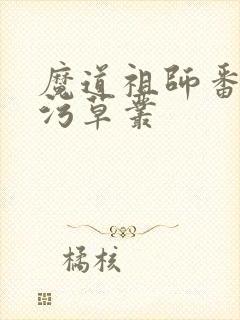 魔道祖師番
污草叢
橘核